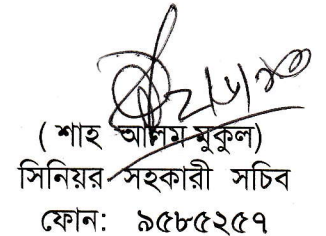 ( শাহ আলম মুকুল)
সিনিয়র সহকারী সচিব
ফোন: ৯৫৮৫২৫৭